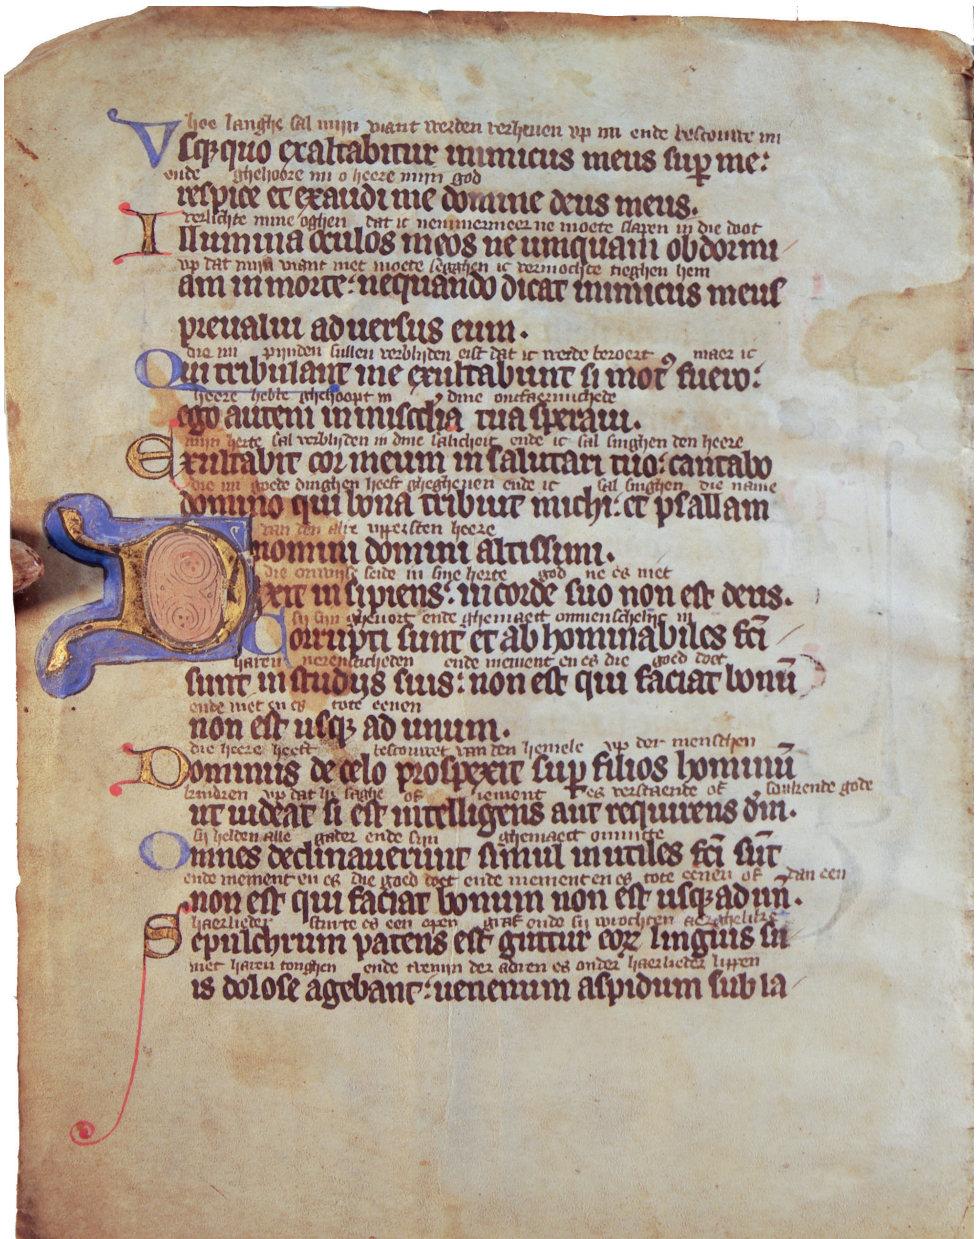 hoe langhe sal mijn viant werden verheuen vp mi ende bescouwe mi
Vsqꝫquo exaltabitur inimicus meus suꝑ me:
ende ghehoore mi o heere mijn god
respice et exaudi me domine deus meus.
verlichte mine oghen dat ic nemmermeer ne moete slapen in die doot
Illumina oculos meos ne umquam obdormi
vp dat mijn viant niet moete segghen ic vermochte tieghen hem
am in morte: nequando dicat inimicus meus
preualui aduersus eum.
die mi pijnden sullen verbliden eist dat ic werde beroert maer ic
Qui tribulant me exultabunt si motꝰ fuero:
heere hebbe ghehoopt in dine ontfaermichede
ego autem in misc̄dia tua speraui.
mijn herte sal verbliden in dine salicheit ende ic sal singhen den heere
Exultabit cor meum in salutari tuo: cantabo
die mi goede dinghen heeft ghegheuen ende ic sal singhen die name
domino qui bona tribuit michi: et psallam
van den alre vpersten heere
nomini domini altissimi.
die onwise seide in sine herte god ne es niet
Dixit insipiens: in corde suo non est deus.
si sijn ghevort ende ghemaect onmenschelijc in
Corrupti sunt et abhominabiles fc̄i
haren ende niement en es die goed doet
sunt in studijs suis: non est qui faciat bonū
ende niet en es tote eenen
non est usqꝫ ad unum.
die heere heeft bescouwet van den hemele vp der menschen
Dominus de celo prospexit suꝑ filios hominū
kindren vp dat hi saghe of iement es verstaende of soukende gode
ut uideat si est intelligens aut requirens dm̄.
sij helden alle gader ende sijn ghemaect onnutte
Omnes declinauerunt simul inutiles fc̄i sūt
ende niement en es die goed doet ende niement en es tote eenen of dan een
non est qui faciat bonum non est usqꝫ ad un̄.
haerlieder es een open graf ende si wrochten
Sepulchrum patens est guttur eoꝝ linguis su
met haren tonghen ende venijn der adren es onder haerlieder lippen
is dolose agebant: uenenum aspidum sub la